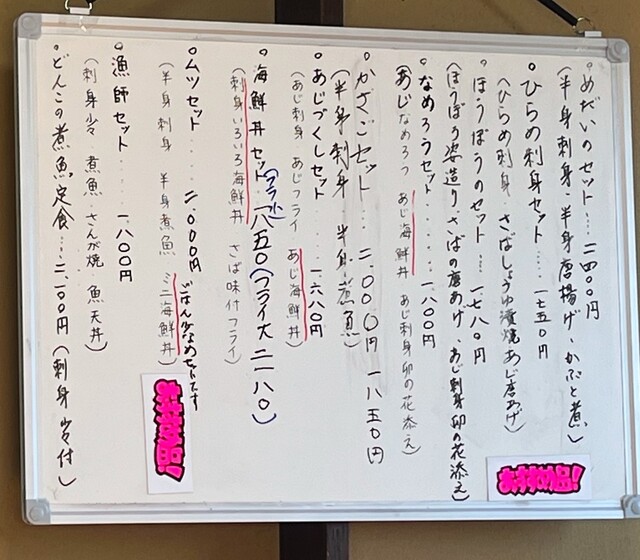 ○めだいのセット……二四〇〇円
（半身刺身・半身唐揚げ・かぶと煮）
○ひらめ刺身セット……一七五〇円
（ひらめ刺身 さばしょうゆ漬焼 あじ唐あげ）
○ほうぼうのセット……一七八〇円
（ほうぼう姿造り、さばの唐あげ、あじ刺身卯の花添え）
○なめろうセット……一八〇〇円
（あじなめろう あじ海鮮丼 あじ刺身卯の花添え）
○かさごセット……二〇〇〇円 一八五〇円
（半身刺身 半身煮魚）
○あじづくしセット……一六八〇円
（あじ刺身 あじフライ あじ海鮮丼）
○海鮮丼セット（フライ小）一八五〇（フライ大二一八〇）
（刺身いろいろ海鮮丼 さば味付フライ）
○ムツセット……二〇〇〇円 ごはん少なめセットです
（半身刺身 半身煮魚 ミニ海鮮丼）
○漁師セット……一八〇〇円
（刺身少々 煮魚 さんが焼 魚天丼）
○どんこの煮魚定食……二一〇〇円（刺身少々付）
おすすめ品!
おすすめ品!